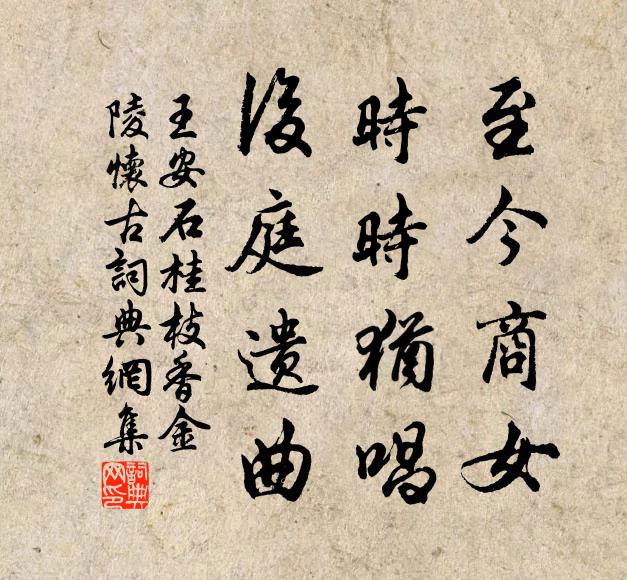 至今商女
時時猶唱
後庭遺曲
王安石桂枝香金
陵懷古詞典網集
詞典
网印